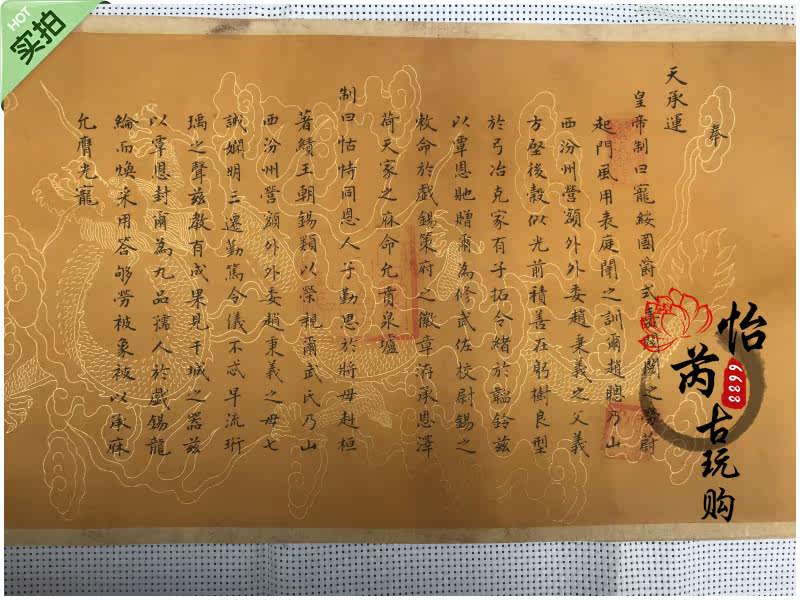 奉
天承運
皇帝制曰寵綏國爵式嘉閥閱之勞蔚
起門風用表庭闈之訓爾趙聰乃山
西汾州營額外外委趙秉義之父義
方啓後穀似光前積善在躬樹良型
於弓冶克家有子拓令緒於韜鈐茲
以覃恩貤贈爾為修武佐校尉錫之
敕命於戲錫策府之徽章洊承恩澤
荷天家之庥命允賁泉壚
制曰怙恃同恩人子勤思於將母赳桓
著績王朝錫類以榮親爾武氏乃山
西汾州營額外外委趙秉義之母七
誡嫻明三遷勤篤令儀不忒早流珩
瑀之聲茲教有成果見干城之器茲
以覃恩封爾為九品孺人於戲錫龍
綸而煥采用答劬勞被象服以承庥
允膺光寵
HOT
实拍
怡芮
6688
古玩购